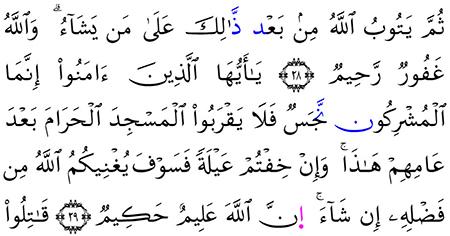 ثُمَّ يَتُوبُ اُ۬للَّهُ مِنۢ بَعْد ذَّٰلِكَ عَلَىٰ مَن يَشَآءُ ۗ وَاللَّهُ
غَفُورٌ رَّحِيمٌ ٢٨ يَٰٓأَيُّهَا اَ۬لَّذِينَ ءَامَنُوٓاْ إِنَّمَا
اَ۬لْمُشْرِكُون نَّجَسٌ فَلَا يَقْرَبُواْ اُ۬لْمَسْجِدَ اَ۬لْحَرَامَ بَعْدَ
عَامِهِمْ هَٰذَا ۚ وَإِنْ خِفْتُمْ عَيْلَةً فَسَوْفَ يُغْنِيكُمُ اُ۬للَّهُ مِن
فَضْلِهِۦٓ إِن شَآءَ ۚ اِنَّ اَ۬للَّهَ عَلِيمٌ حَكِيمٌ ٢٩ قَٰتِلُواْ